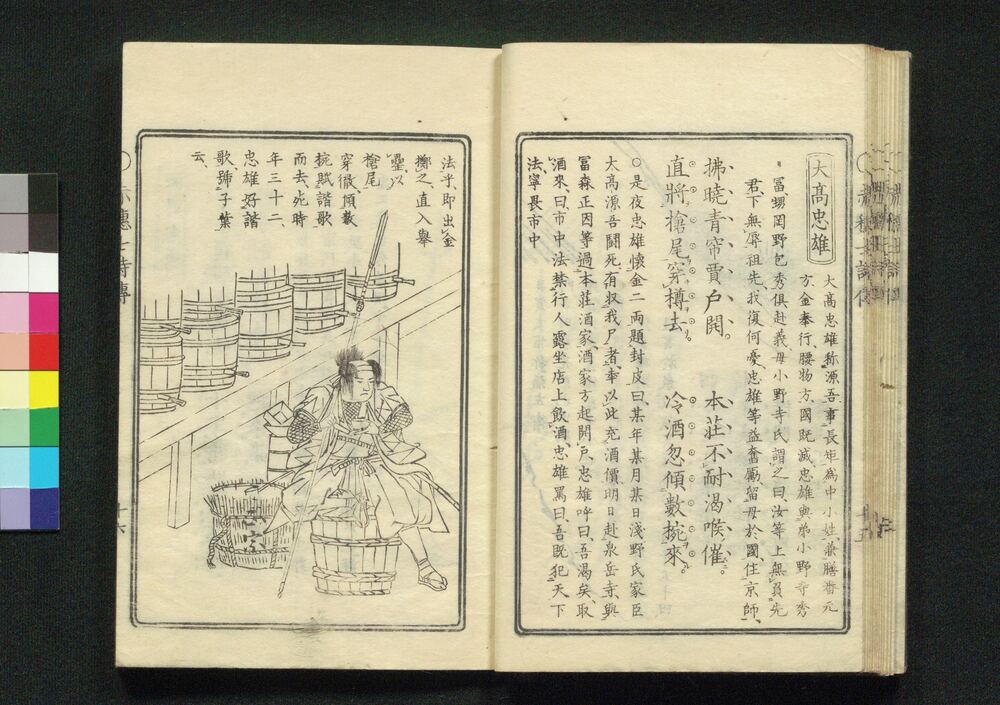 大高忠雄
大高忠雄称源吾事長矩為中小姓兼膳番元
方金奉行腰物方国既滅忠雄与弟小野寺秀
冨甥岡野包秀倶赴義母小野寺氏謂之曰汝等上無負先
君下無辱祖先我復何憂忠雄等益奮励留母於国住京師
拂曉青帘賈戸開 本荘不耐渇喉催
直將槍尾穿樽去 冷酒忽傾數椀來
○是夜忠雄懐金二両題封皮曰某年某月某日浅野氏家臣
大高源吾闘死有収我尸者奉以此充酒價明日赴泉岳寺与
冨森正因等過本荘酒家酒家方起開戸忠雄呼曰吾渇矣取
酒來曰市中法禁行人露坐店上飲酒忠雄罵曰吾既犯天下
法寧畏市中
法乎即出金
擲之直入挙
罍以
槍尾
穿徹傾数
椀賦諧歌
而去死時
年三十二
忠雄好諧
歌號子葉
云
十六